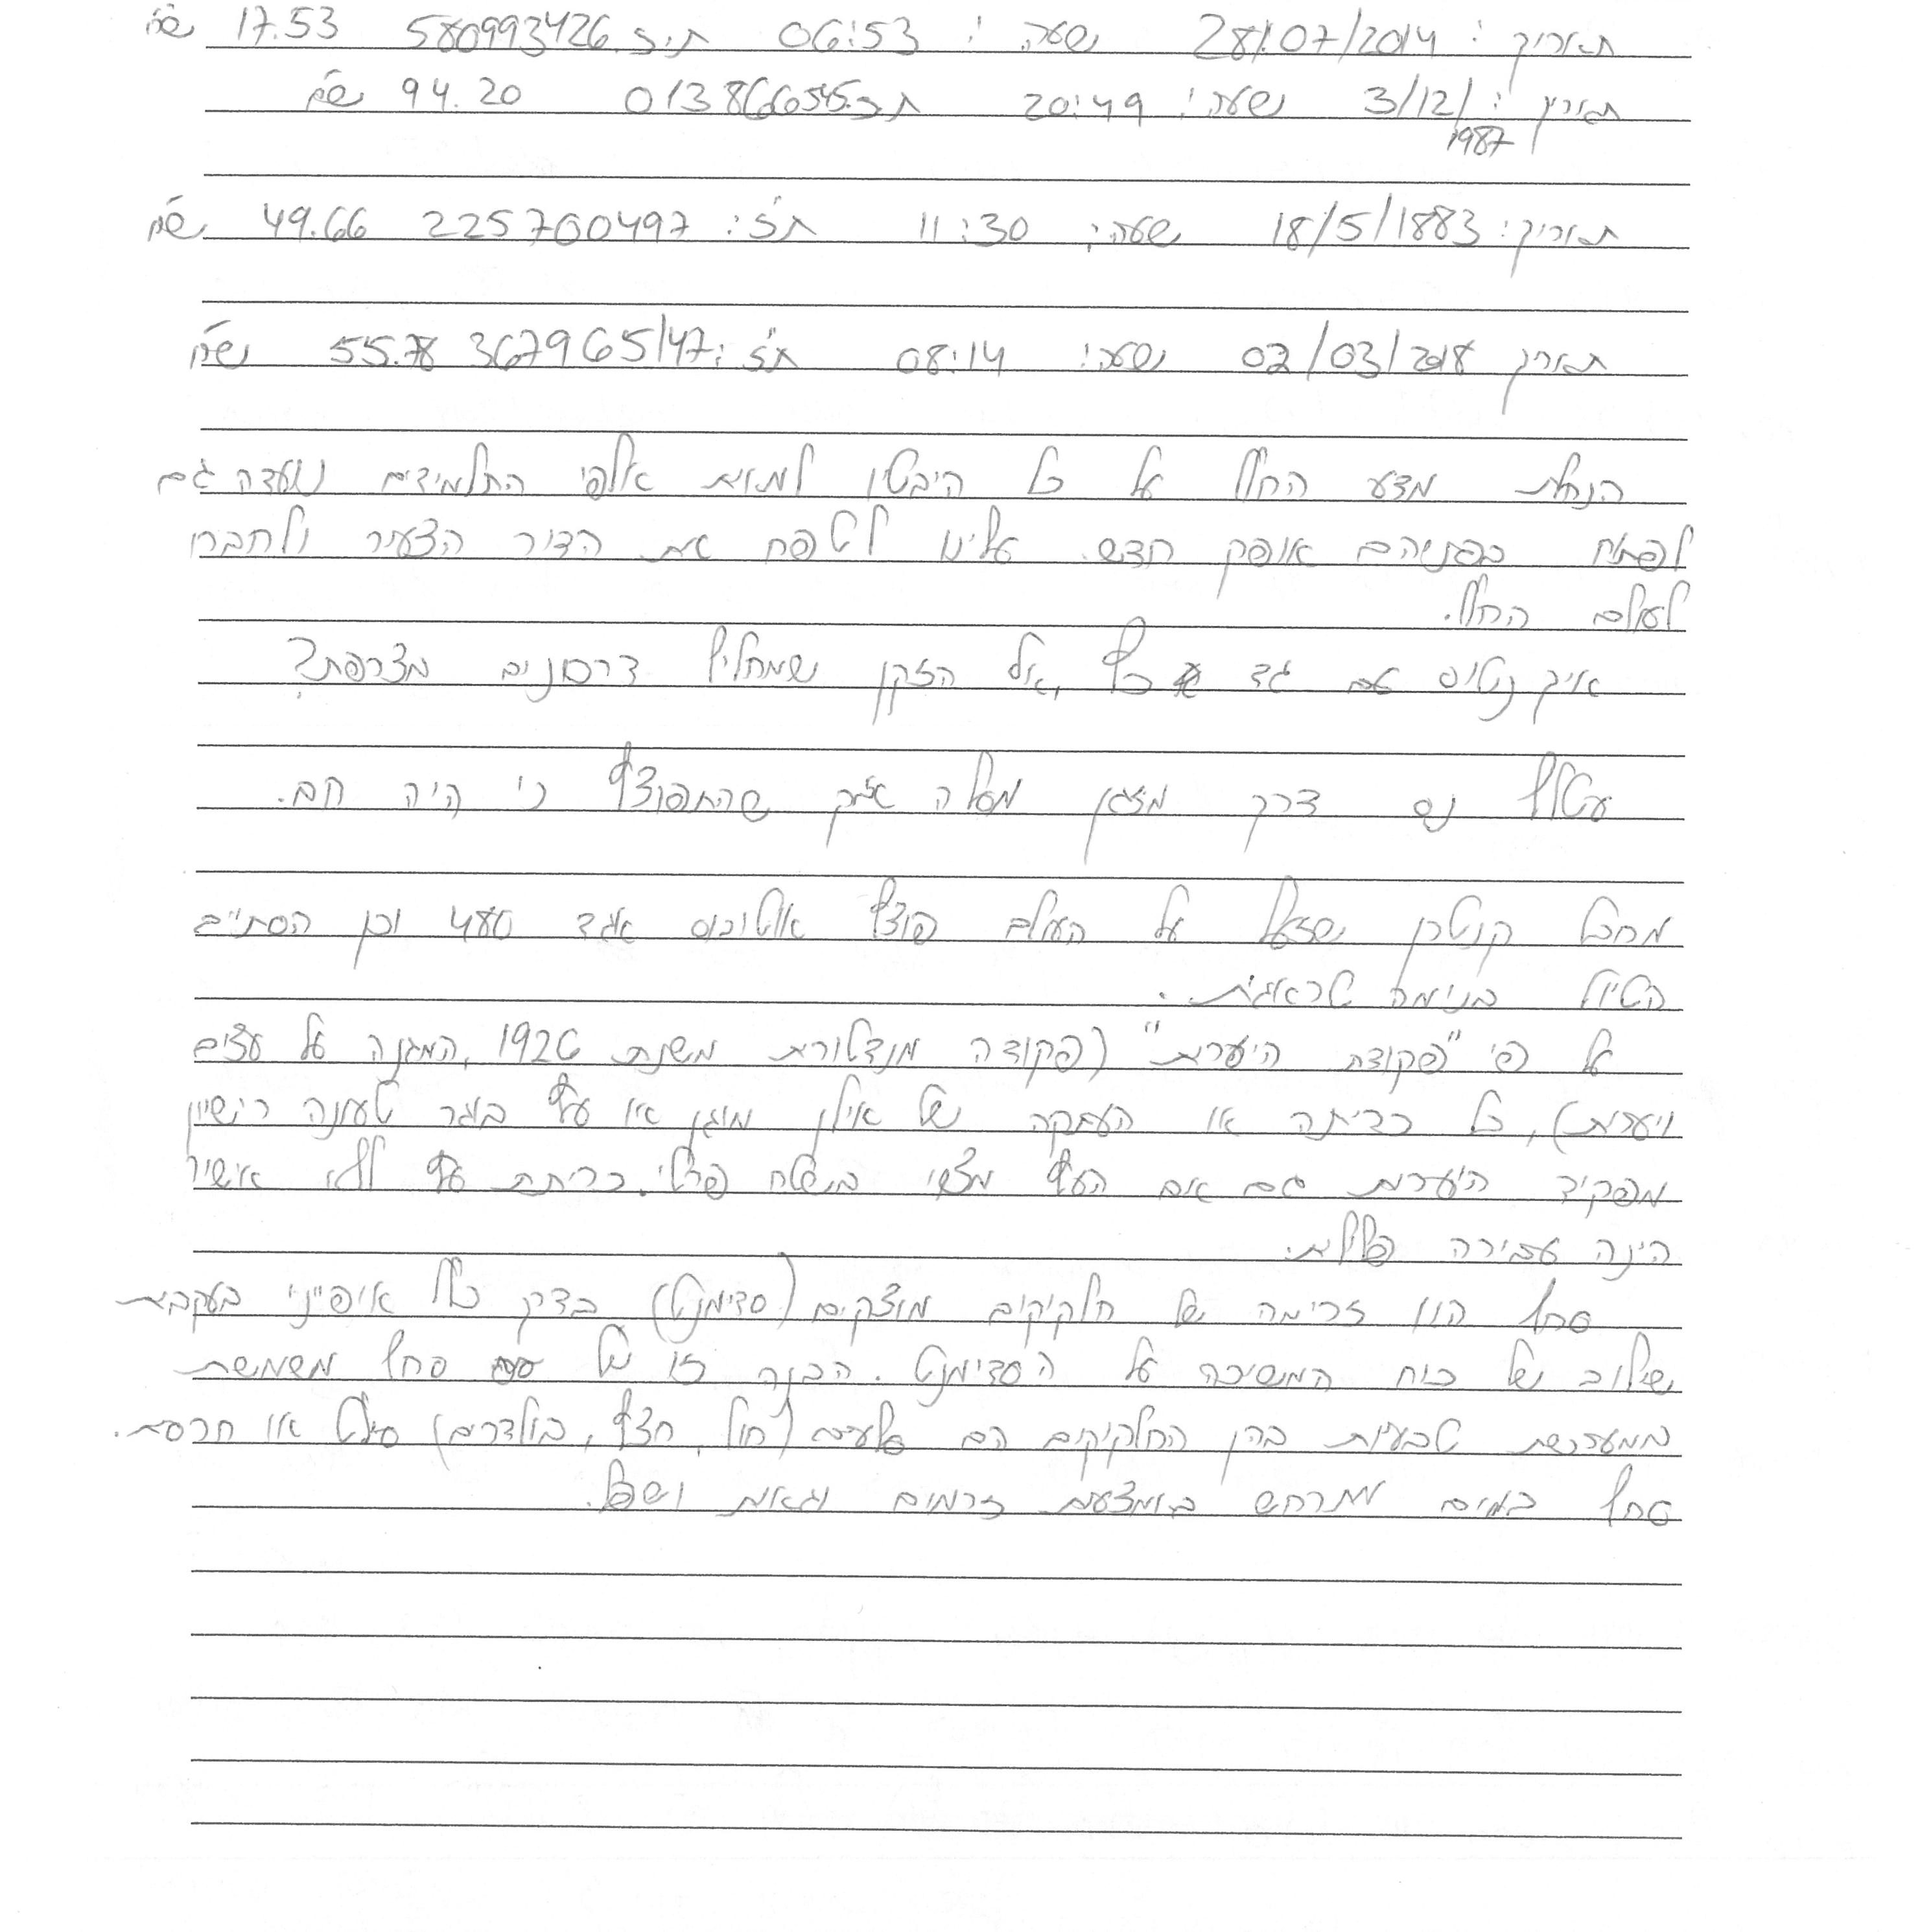 תאריך: 28/07/2014 שעה: 06:53 ת.ז. 580993426 17.53 ש"ח
תאריך: 3/12/ שעה: 20:49 ת.ז. 013866545 94.20 ש"ח
1987
תאריך: 18/5/1883 שעה: 11:30 ת"ז: 225760497 49.66 ש"ח
תאריך 02/03/2018 שעה: 08:14 ת"ז: 367965147 55.78 ש"ח
הנחלת מדע החלל על כל היבטיו למאות אלפי התלמידים נועדה גם
לפתוח בפניהם אופק חדש. עלינו לטפח את הדור הצעיר ולחברו
לעולם החלל.
איך נטוס עם גד כץ, אל הזקן שמחליף דרכונים מצרפת?
עטלף נס דרך מזגן מסלה אזק שהתפוצץ כי היה חם.
מחבל קנטרן שזעל על העולם פוצץ אוטובוס אגד 480 וכן הסתיים
הטיול בנימה טראגית.
על פי "פקודת היערות" (פקודה מנדטורית משנת 1926, המגנה על עצים
ויערות), כל כריתה או העתקה של אילן מוגן או עץ בוגר טעונה רישיון
מפקיד היערות גם אם העץ מצוי בשטח פרטי. כריתת עץ ללא אישור
הינה עבירה פלילית.
סחף הנו זרימה של חלקיקים מוצקים (סדימנט) בדרך כלל אופייני בעקבות
שילוב של כוח המשיכה על הסדימנט. הבנה זו של סחף משמשת
במערכות טבעיות בהן החלקיקים הם סלעים (חול, חצץ, בולדרים) סילט או חרסית.
סחף במים מתרחש באמצעות זרמים וגאות ושפל.